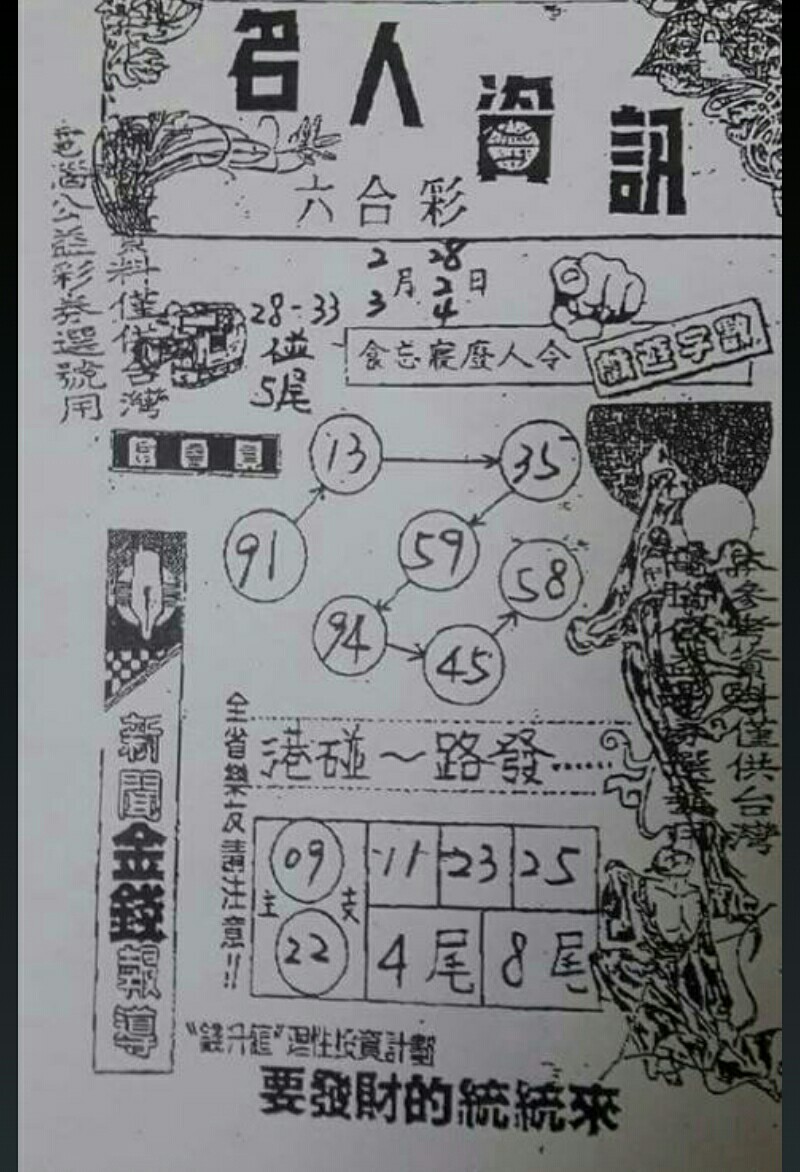 名人資訊
六合彩
電腦公益彩券選號用
資料僅供台灣
2 28
月 2 日
3 4
28-33
碰
5尾
食忘寢廢人令
13
35
91
59
58
94
45
新聞金錢報導
全省樂友請注意!!
港碰~路發……
09
11
23
25
主
支
22
4尾
8尾
本參考資料僅供台灣
理性投資計劃
要發財的統統來